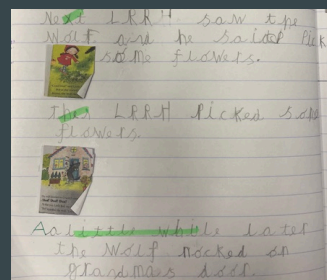 Next LRRH saw the
wolf and he said Pick
some flowers.
Then LRRH Picked some
flowers
A little while later
the wolf nocked on
grandmas door.